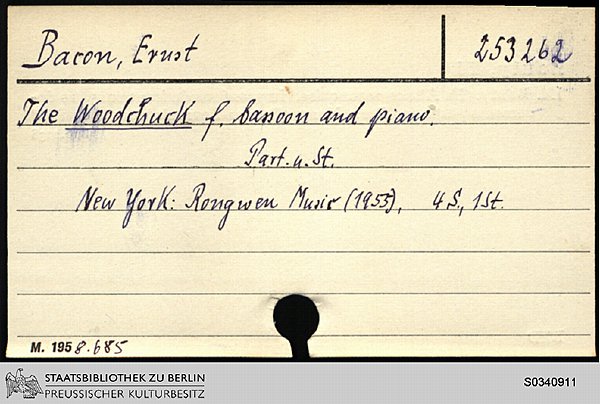 Bacon, Ernst 253262
The Woodchuck f. bassoon and piano.
Part. u. St.
New York: Rongwen Music (1955), 4 S., 1 St.
M. 1958.685
STAATSBIBLIOTHEK ZU BERLIN
PREUSSISCHER KULTURBESITZ
S0340911